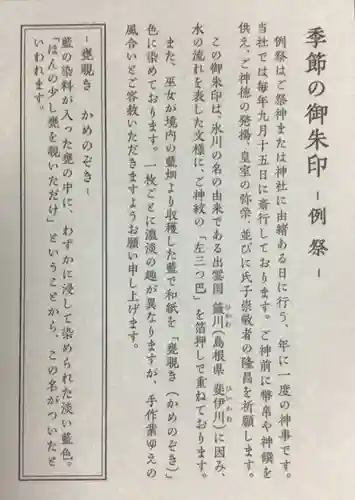 季節の御朱印 － 例祭 －
例祭はご祭神または神社に由緒ある日に行う、年に一度の神事です。
当社では毎年九月十五日に斎行しております。ご神前に幣帛や神饌を
供え、ご神徳の発揚、皇室の弥栄、並びに氏子崇敬者の隆昌を祈願します。
この御朱印は、氷川の名の由来である出雲国 簸川（島根県 斐伊川）に因み、
ひかわ
ひいかわ
水の流れを表した文様に、ご神紋の「左三つ巴」を箔押しで重ねております。
また、巫女が境内の藍畑より収穫した藍で和紙を「甕覗き（かめのぞき）」
色に染めております。一枚ごとに濃淡の趣が異なりますが、手作業ゆえの
風合いとご容赦いただきますようお願い申し上げます。
－ 甕覗き かめのぞき －
藍の染料が入った甕の中に、わずかに浸して染められた淡い藍色。
「ほんの少し甕を覗いただけ」ということから、この名がついたと
いわれます。